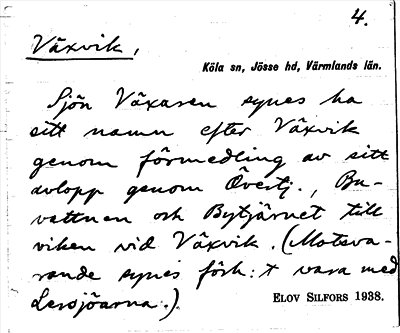 4.
Växvik,
Köla sn, Jösse hd, Värmlands län.
Sjön Växaren synes ha
sitt namn efter Växvik
genom förmedling av sitt
avlopp genom Övertj., Bu-
vattnen och Bytjärnet till
viken vid Växvik. (Motsva-
rande synes förh:t vara med
Lersjöarna.).
ELOV SILFORS 1938.